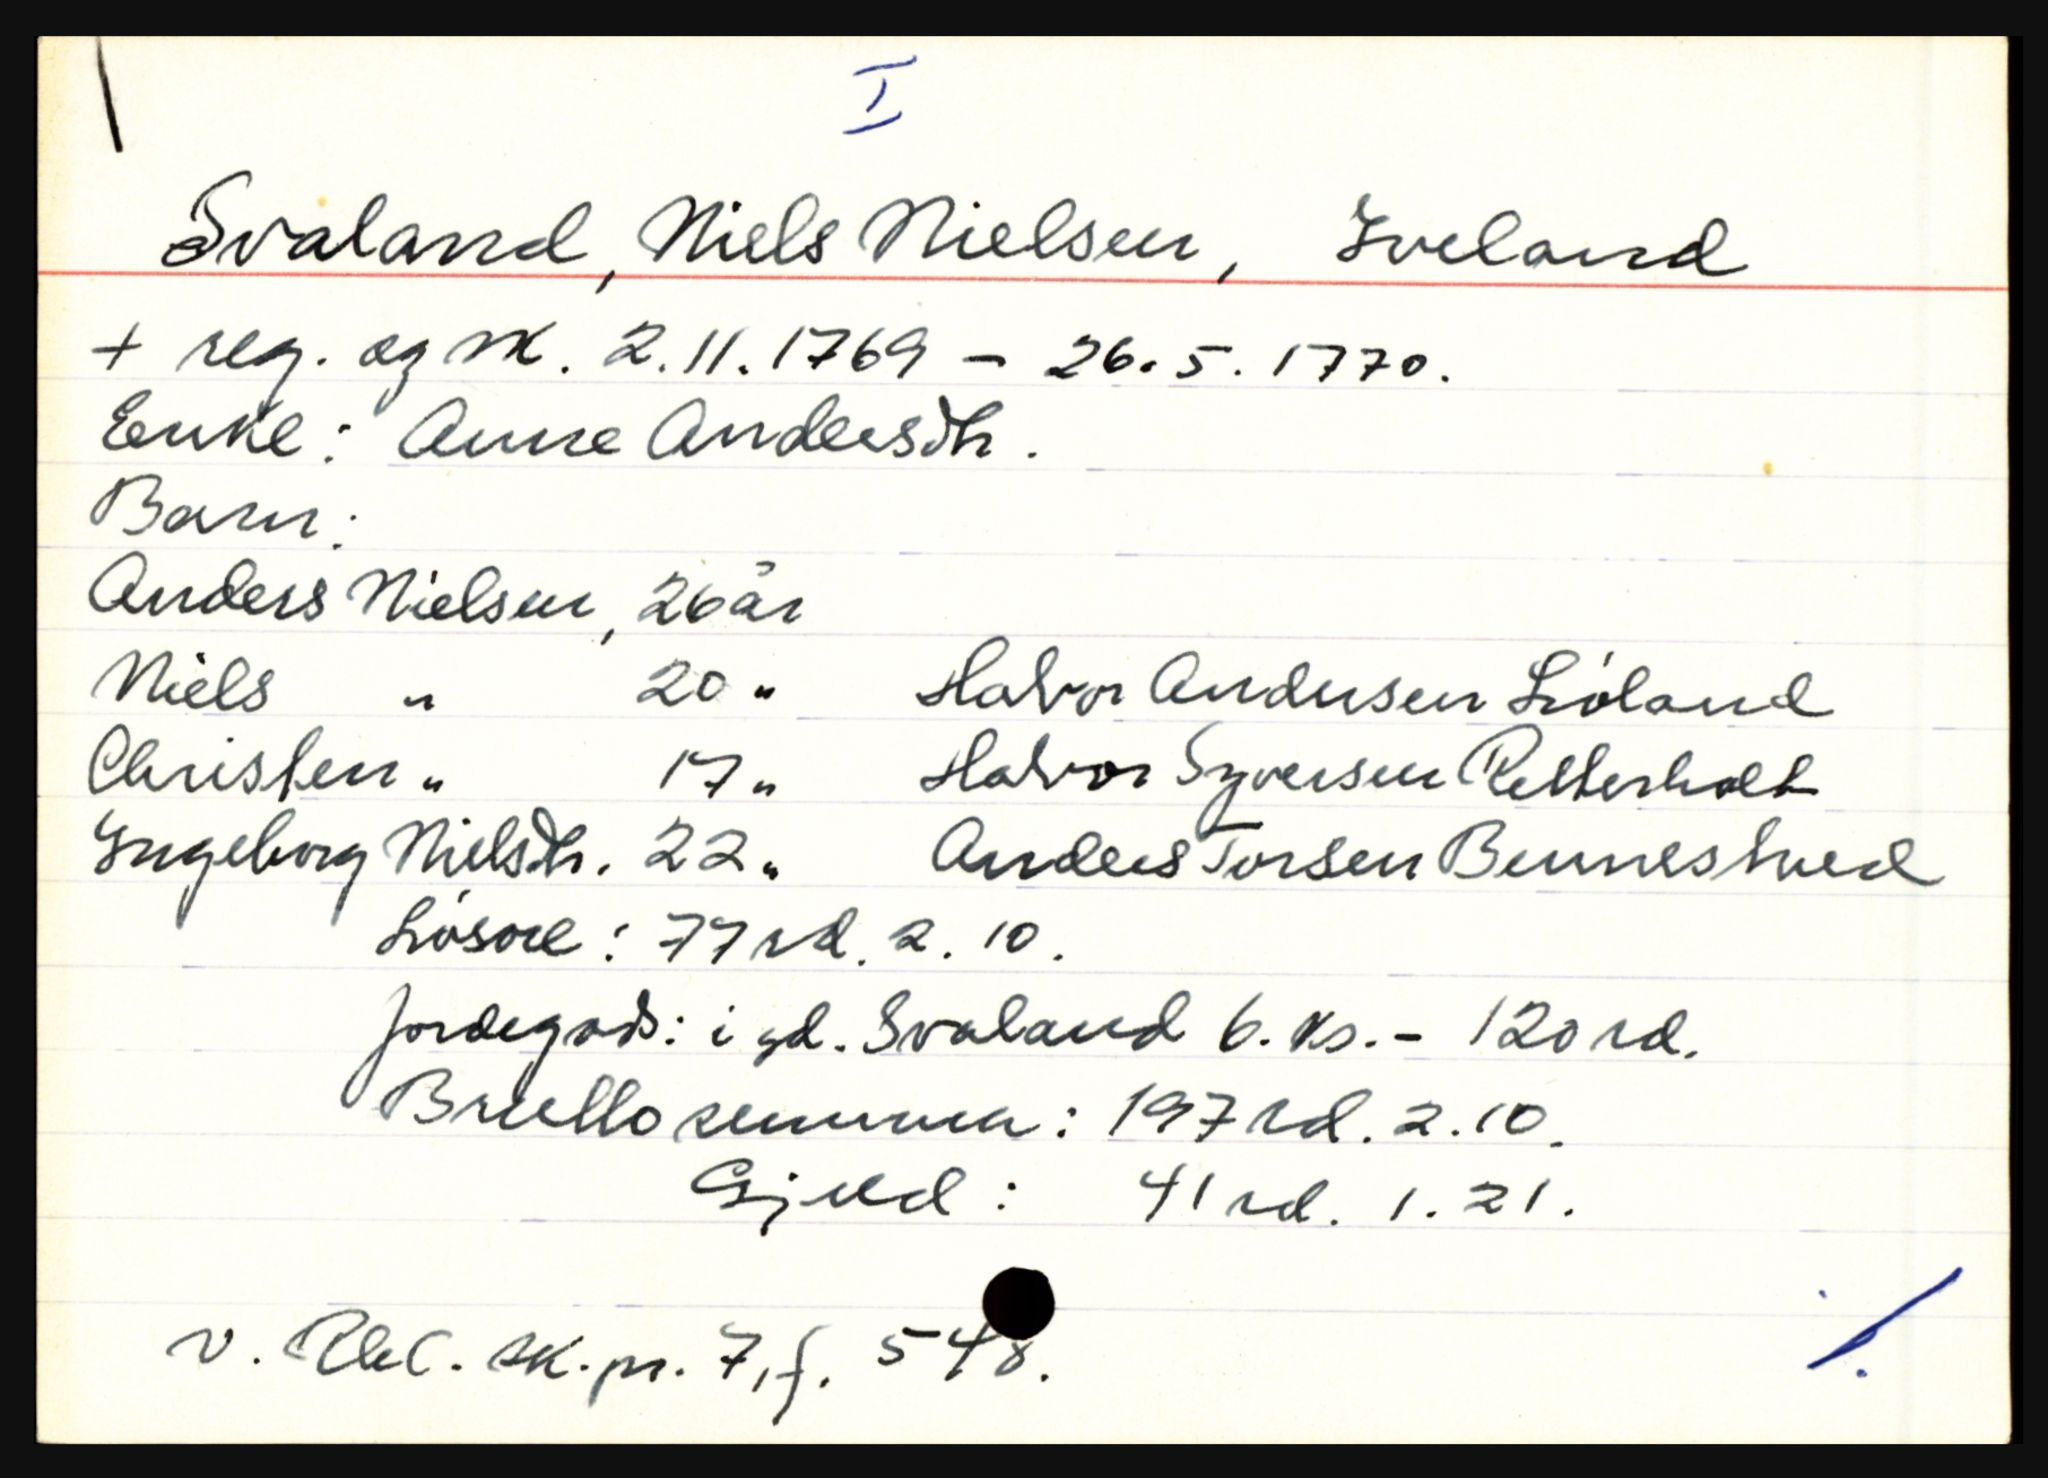 I
Svaland, Niels Nielsen, Iveland
+ reg. og sk. 2.11.1769 - 26.5.1770.
Enke: Anne Andersdtr.
Barn:
Anders Nielsen, 26 år
Niels " 20 " Halvor Andersen Liøland
Christen " 17 " Halvor Syversen Retterholt
Ingeborg Nielsdtr. 22 " Anders Torsen Bunnestved
Løsøre: 77 rd. 2. 10.
Jordegods: i gd. Svaland 6. ks. - 120 rd.
Bruttosumma: 197 rd. 2. 10.
Gjeld: 41 rd. 1. 21.
v. Rbl. sk. pr. 7, f. 548.